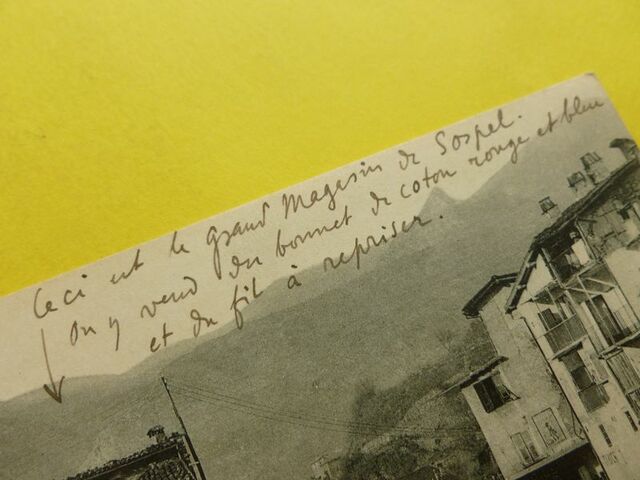 Ceci est le grand Magasin de Sospel.
On y vend du bonnet de coton rouge et bleu
et du fil à repriser.